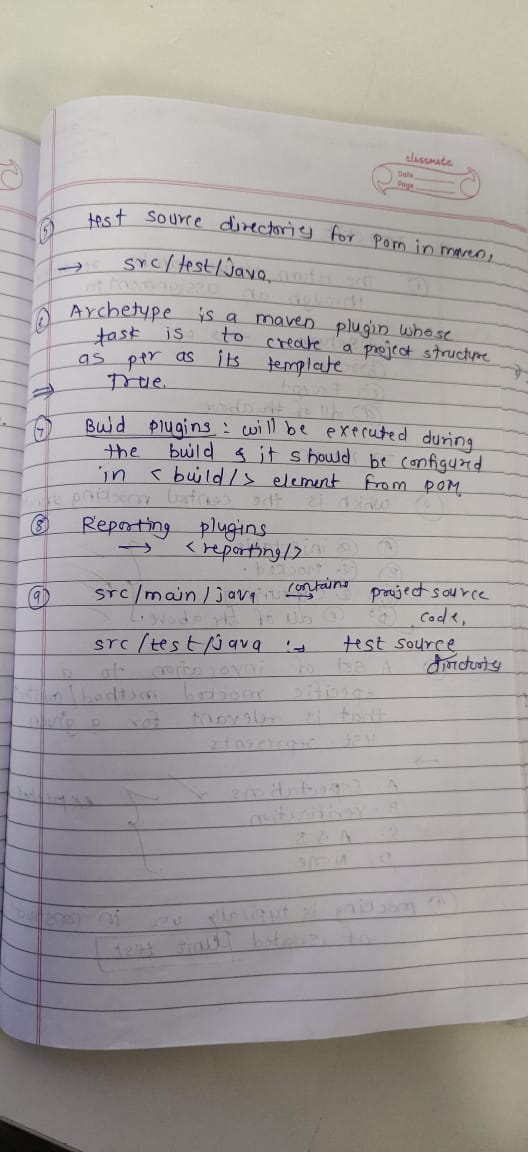 classmate
Date
Page
⑤ test source directories for pom in maven,
→ src/test/java,
⑥ Archetype is a maven plugin whose
task is to create a project structure
as per as its template
⇒ True.
⑦ Buid plugins : will be executed during
the build & it should be configured
in <build/> element from POM
⑧ Reporting plugins
→ <reporting/>
⑨ src/main/java contains → project source
code,
src/test/java :→ test source
directory